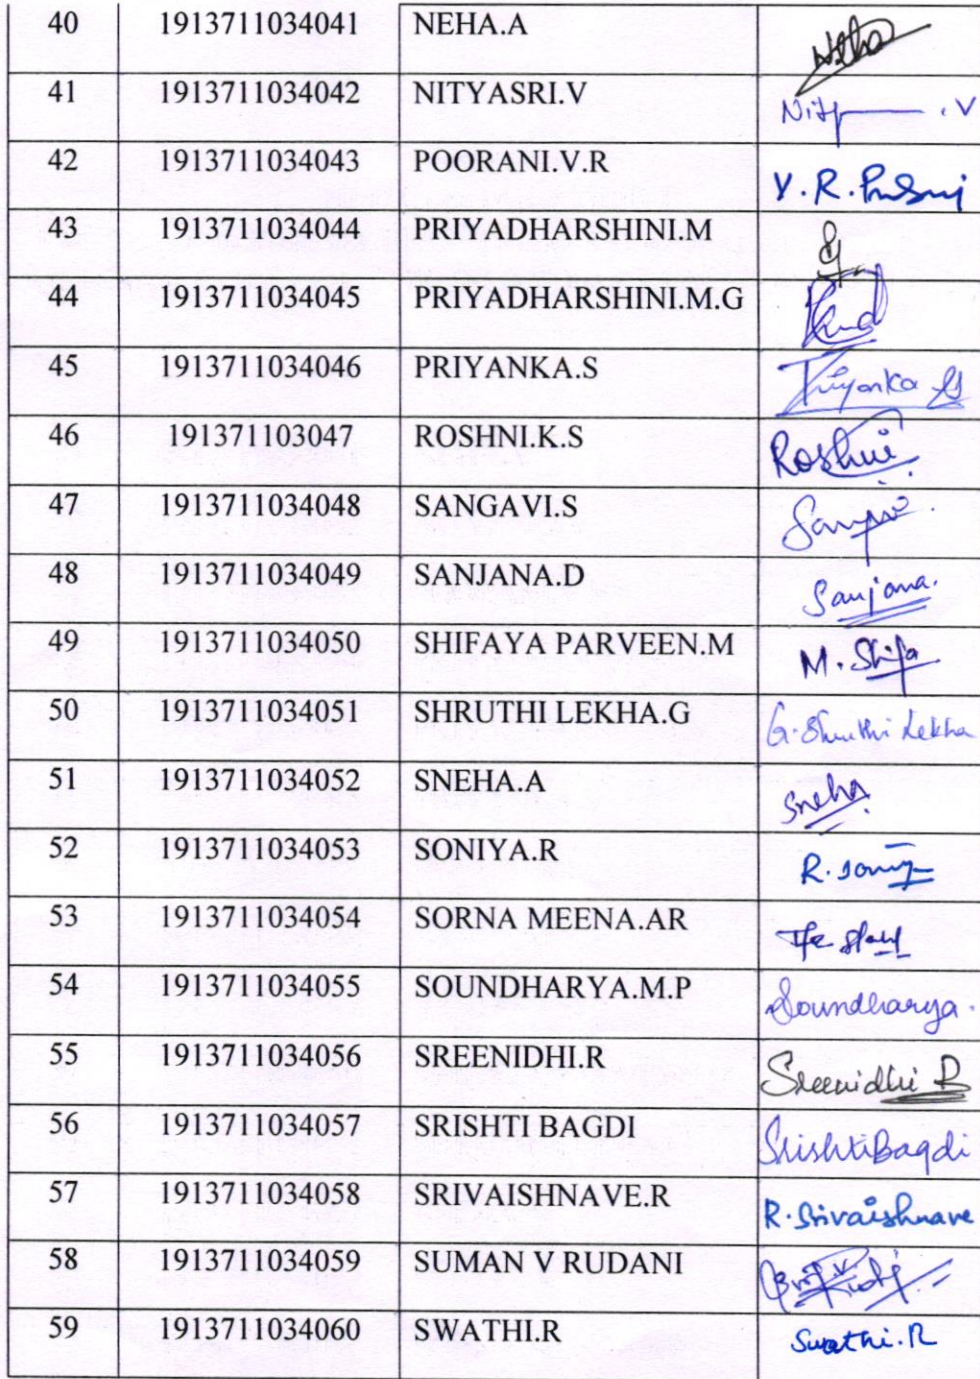 40 1913711034041 NEHA.A Neha
41 1913711034042 NITYASRI.V
42 1913711034043 POORANI.V.R V.R.
43 1913711034044 PRIYADHARSHINI.M
44 1913711034045 PRIYADHARSHINI.M.G
45 1913711034046 PRIYANKA.S Priyanka S
46 191371103047 ROSHNI.K.S Roshni
47 1913711034048 SANGAVI.S
48 1913711034049 SANJANA.D Sanjana.
49 1913711034050 SHIFAYA PARVEEN.M M. Shifa
50 1913711034051 SHRUTHI LEKHA.G G. Shruthi Lekha
51 1913711034052 SNEHA.A Sneha
52 1913711034053 SONIYA.R R. Soniya
53 1913711034054 SORNA MEENA.AR
54 1913711034055 SOUNDHARYA.M.P Soundharya.
55 1913711034056 SREENIDHI.R Sreenidhi R
56 1913711034057 SRISHTI BAGDI Srishti Bagdi
57 1913711034058 SRIVAISHNAVE.R R. Srivaishnave
58 1913711034059 SUMAN V RUDANI
59 1913711034060 SWATHI.R Swathi.R